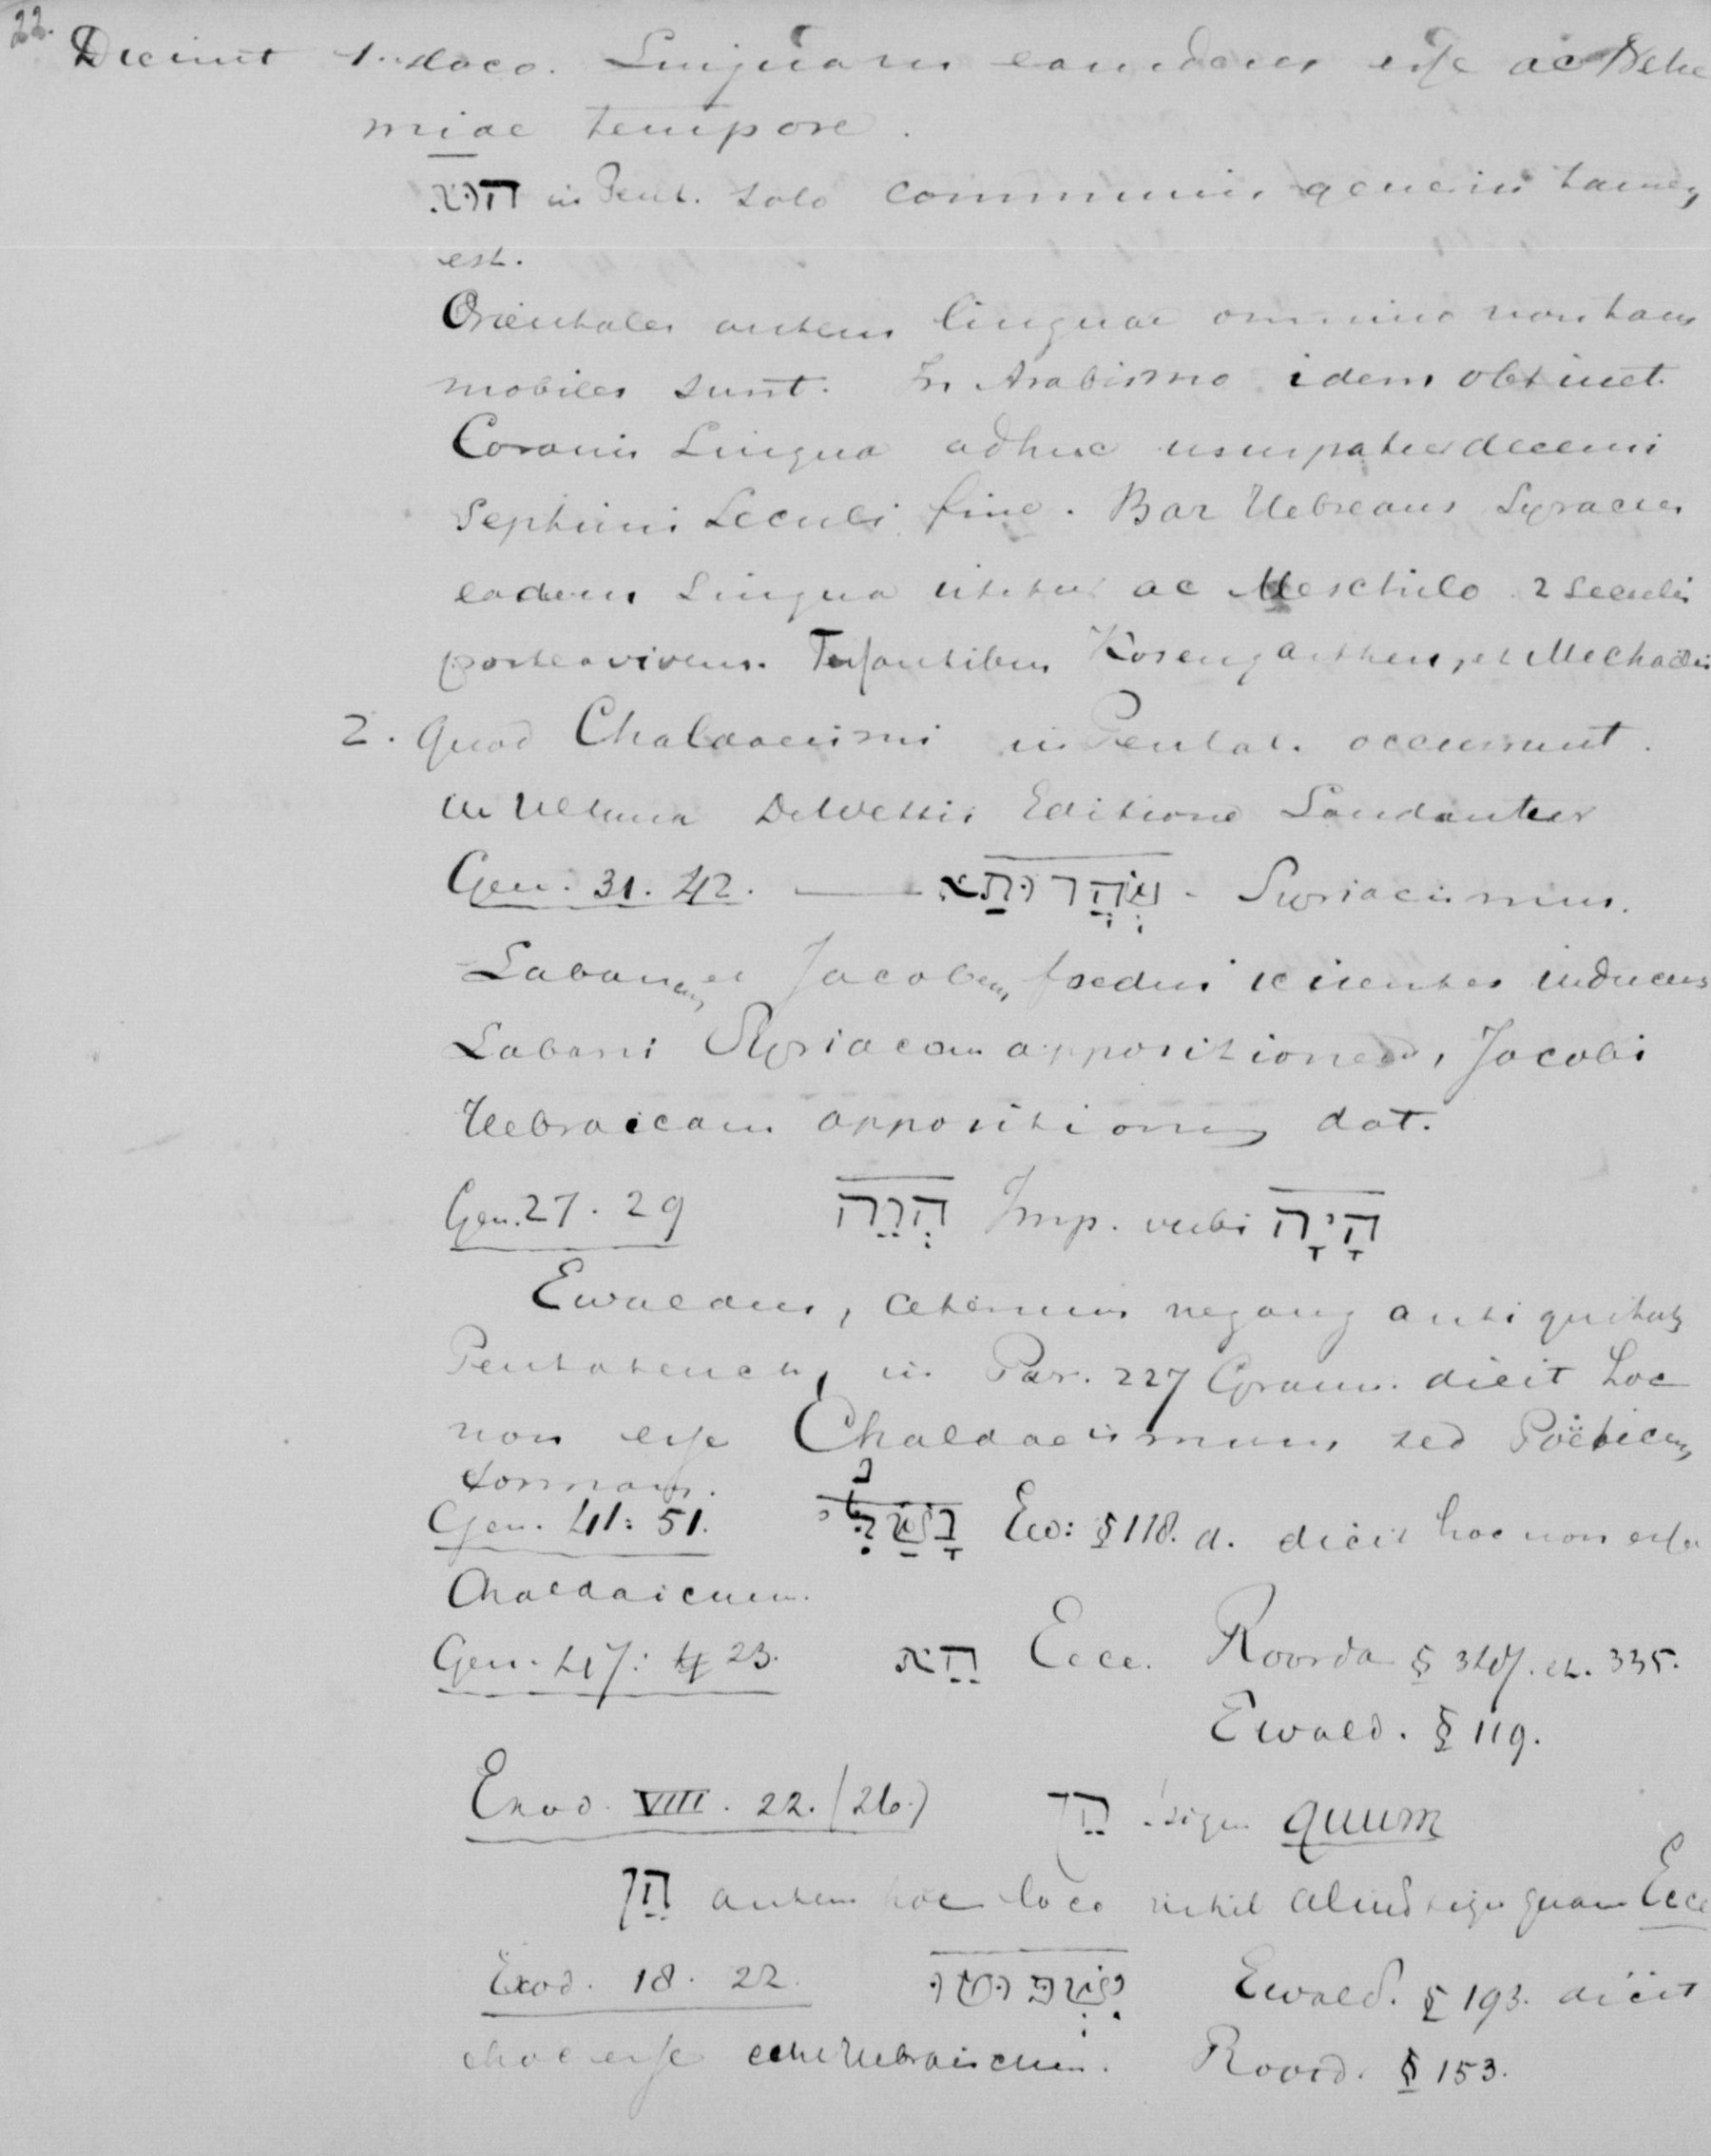 22.
Dicunt 1. loco. Linguam eandem esse ac Nehe
miae tempore.
הוא in Pent. solo communis generis tamen
est.
Orientales autem linguae omnino non tam
mobiles sunt. In Arabismo idem obtinet.
Coranis Lingua adhuc usurpatur decimi
septimi seculi fine. Bar Hebreaus Syracus
eadem Lingua utitur ac 2 seculis
postea vivens. Kosengarthen, et
2. Quod Chaldaeismi in Pentat. occurrunt.
in ultima DeWettii Editione Laudantur
Gen. 31. 42. — שׂהדותא - Syriacismus.
Labanem et Jacobum foedus icientes inducens
Labani Syriacam appositionem, Jacobi
Hebraicam appositionem dat.
Gen. 27. 29 הֱוֵה Imp. verbi הָיָה
Ewaldus, ceterum negans antiquitatem
Pentateuchi, in Par. 227 Gramm. dicit hoc
non esse Chaldaeismum sed Poëticam
formam.
Gen. 41: 51. Ew: § 118. d. dicit hoc non esse
Chaldaicum.
Gen. 47: 23. הֵא Ecce. Roorda § 347. et. 335.
Ewald. § 119.
Exod. VIII. 22. (26.) הֵן sign. quum
הֵן autem hoc loco nihil aliud sign quam Ecce
Exod. 18. 22. Ewald. § 193. dicit
hoc esse echt Hebraicum. Roord. § 153.